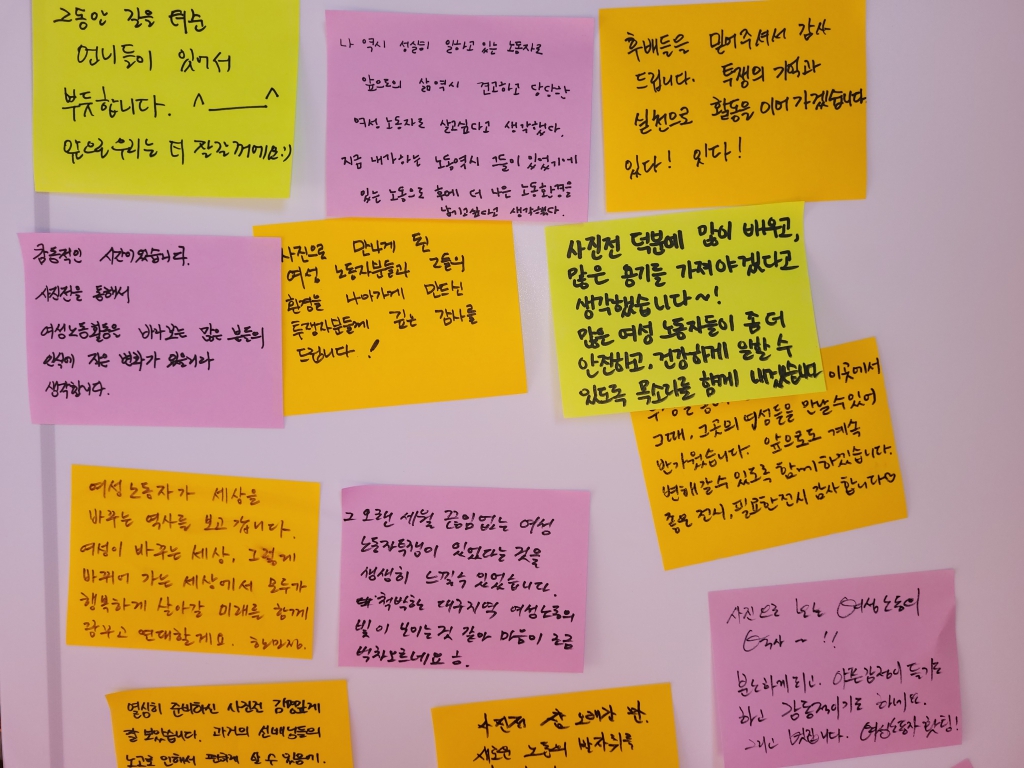 그동안 길을 터준
언니들이 있어서
뿌듯합니다. ^____^
앞으로 우리는 더 잘 갈 꺼에요:)
나 역시 성실히 일하고 있는 노동자로
앞으로의 삶 역시 견고하고 당당한
여성 노동자로 살고싶다고 생각했다.
지금 내가하는 노동역시 그들이 있었기에
있는 노동으로 후에 더 나은 노동환경을
남기고싶다고 생각했다.
후배들을 믿어주셔서 감사
드립니다. 투쟁의 기억과
실천으로 활동을 이어 가겠습니다
있다! 잇다!
감동적인 시간이었습니다.
사진전을 통해서
여성노동활동은 바라보는 많은 분들의
인식에 작은 변화가 있으리라
생각합니다.
사진으로 만나게 된
여성 노동자분들과 그들의
환경을 나아가게 만드신
투쟁자분들께 깊은 감사를
드립니다!
사진전 덕분에 많이 배우고,
많은 용기를 가져야겠다고
생각했습니다~!
많은 여성 노동자들이 좀 더
안전하고, 건강하게 일할 수
있도록 목소리를 함께 내겠습니다
이곳에서
그때, 그곳의 여성들을 만날 수 있어
반가웠습니다. 앞으로도 계속
변해갈 수 있도록 함께하겠습니다.
좋은 전시, 필요한 전시 감사합니다♡
여성 노동자가 세상을
바꾸는 역사를 보고 갑니다.
여성이 바꾸는 세상, 그렇게
바뀌어 가는 세상에서 모두가
행복하게 살아갈 미래를 함께
꿈꾸고 연대할게요.
그 오랜 세월 끊임없는 여성
노동자투쟁이 있었다는 것을
생생히 느낄수 있었습니다.
척박한 대구지역 여성노동의
빛이 보이는것 같아 마음이 조금
벅차오르네요
사진으로 보는 여성노동의
역사~!!
분노하게 되고, 아픈감정이 들기도
하고 감동적이기도 하네요.
그리고 멋집니다. 여성노동자 홧팅!
열심히 준비하신 사진전 감명있게
잘 보았습니다. 과거의 선배님들의
노고로 인해서 편하게 살 수 있음에.
사진전 참 오래간 만.
새로운 노동의 발자취를